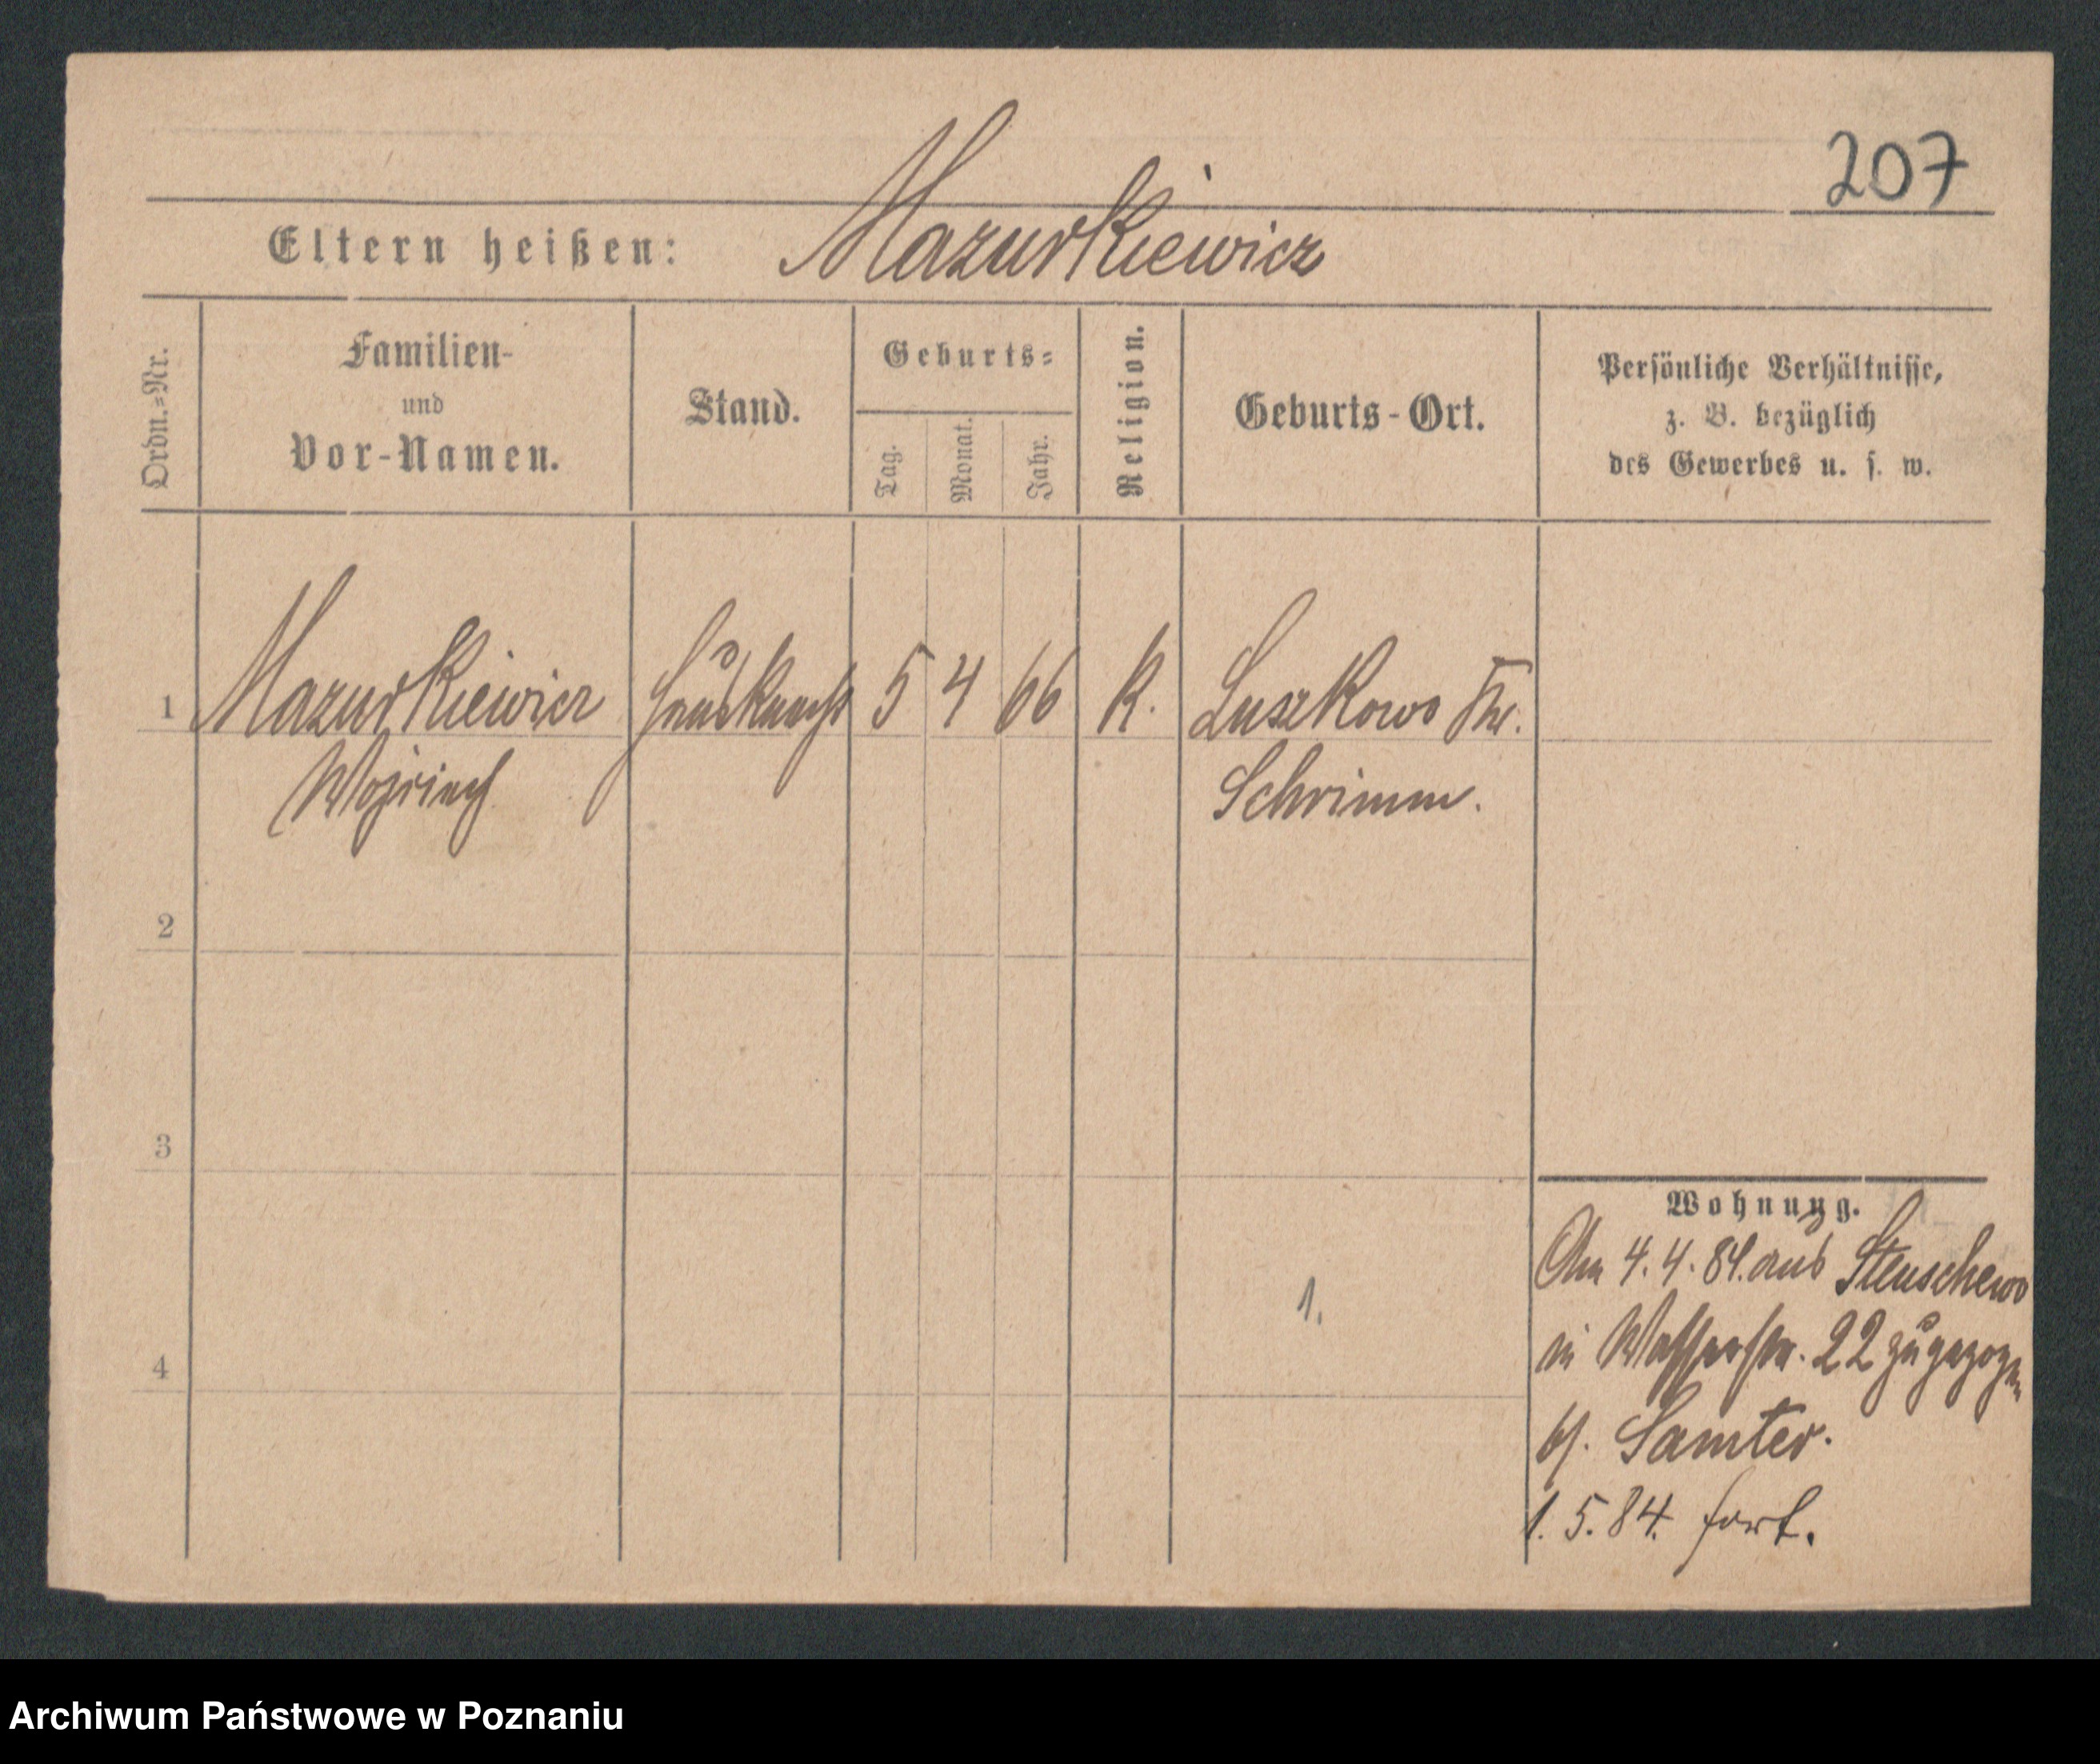 207
Eltern heißen: Mazurkiewicz
Ordn.=Nr.
Familien-
und
Vor-Namen.
Stand.
Geburts=
Tag.
Monat.
Jahr.
Religion.
Geburts-Ort.
Persönliche Verhältnisse,
z. B. bezüglich
des Gewerbes u. s. w.
1 Mazurkiewicz Hausknecht 5 4 66 K. Luszkowo Kr.
Schrimm.
2
3
4
1.
Wohnung.
Am 4.4.84. aus Stenschewo
in Wasserstr. 22 zugezogen
bei Samter.
1.5.84. fort.
Archiwum Państwowe w Poznaniu